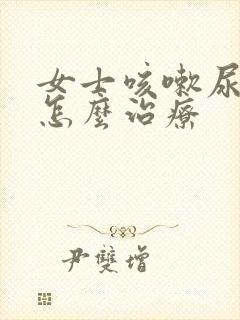 女士咳嗽尿
怎麼治療
尹雙增